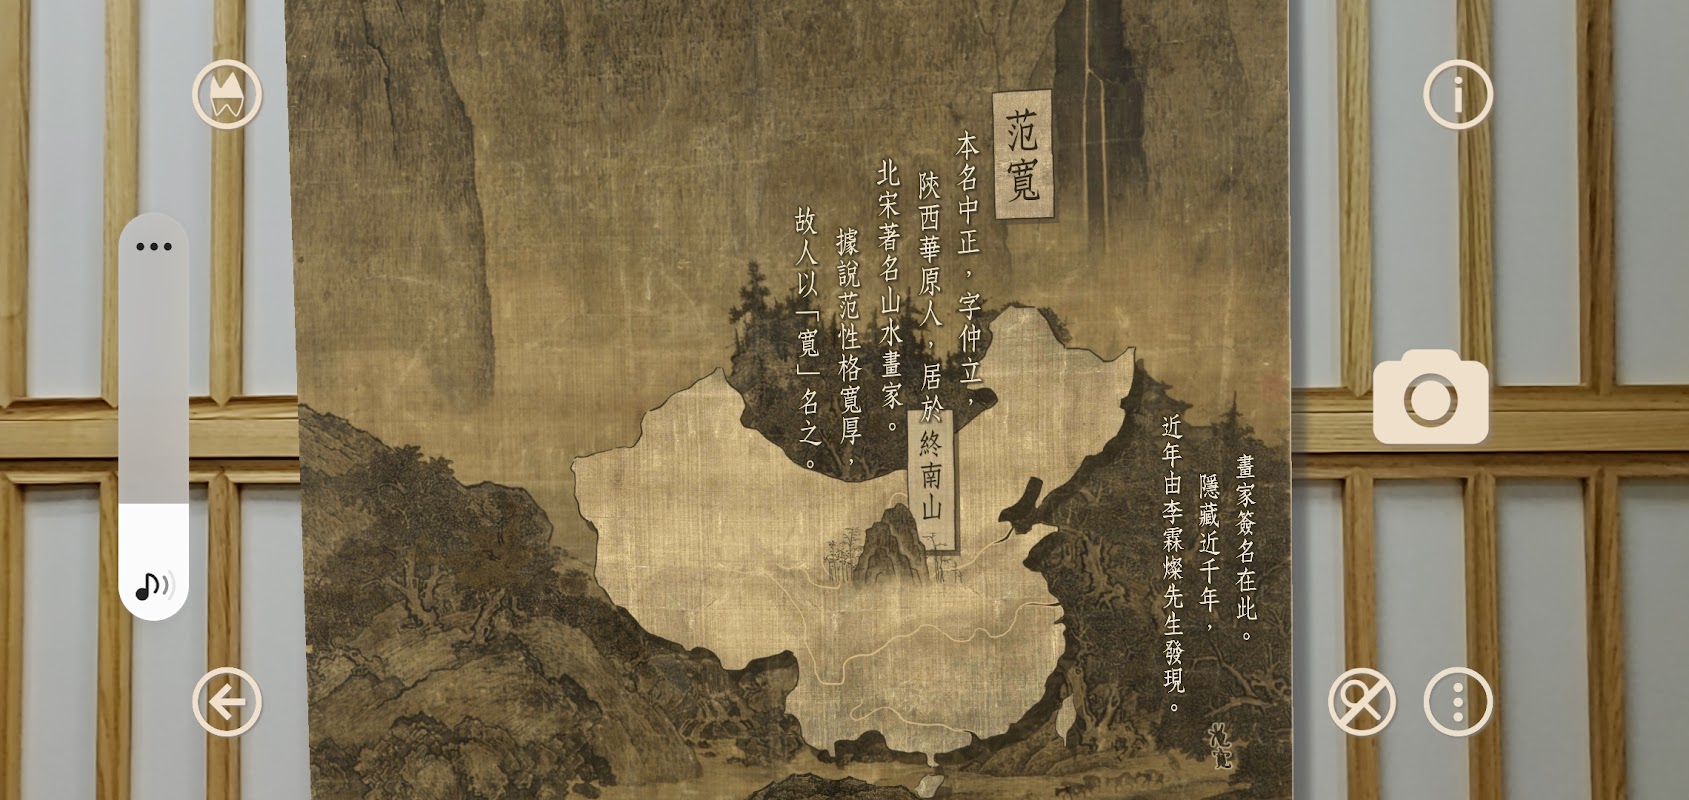 范寬
本名中正，字仲立，
陝西華原人，居於終南山
北宋著名山水畫家。
據說范性格寬厚，
故人以「寬」名之。
畫家簽名在此。
隱藏近千年，
近年由李霖燦先生發現。
范寬